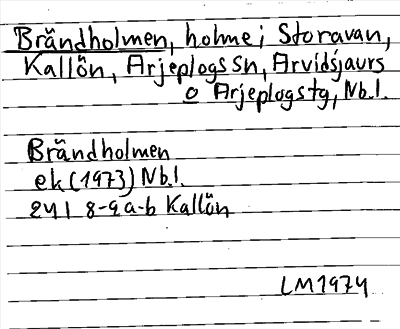 Brändholmen, holme i Storavan,
Kallön, Arjeplogs sn, Arvidsjaurs
o Arjeplogs tg, Nb.l.
Brändholmen
ek (1973) Nb.l.
24I 8-9 a-b Kallön
LM1974